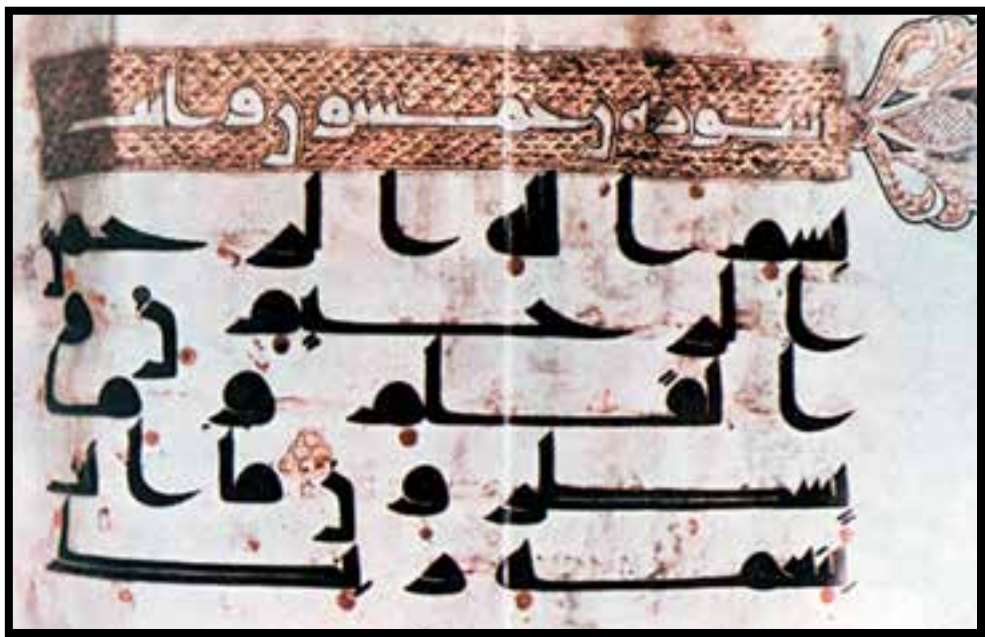 سورة ن خمسون
بسم الله الرحمن
الرحيم ن و
القلم و ما
يسطرون ما انت
بنعمة ربك